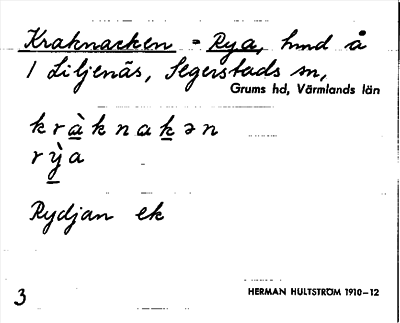 Kraknacken = Rya, hmd å
1 Liljenäs, Segerstads sn,
Grums hd, Värmlands län
kràknakən
rỳa
Rydjan ek
3
HERMAN HULTSTRÖM 1910–12